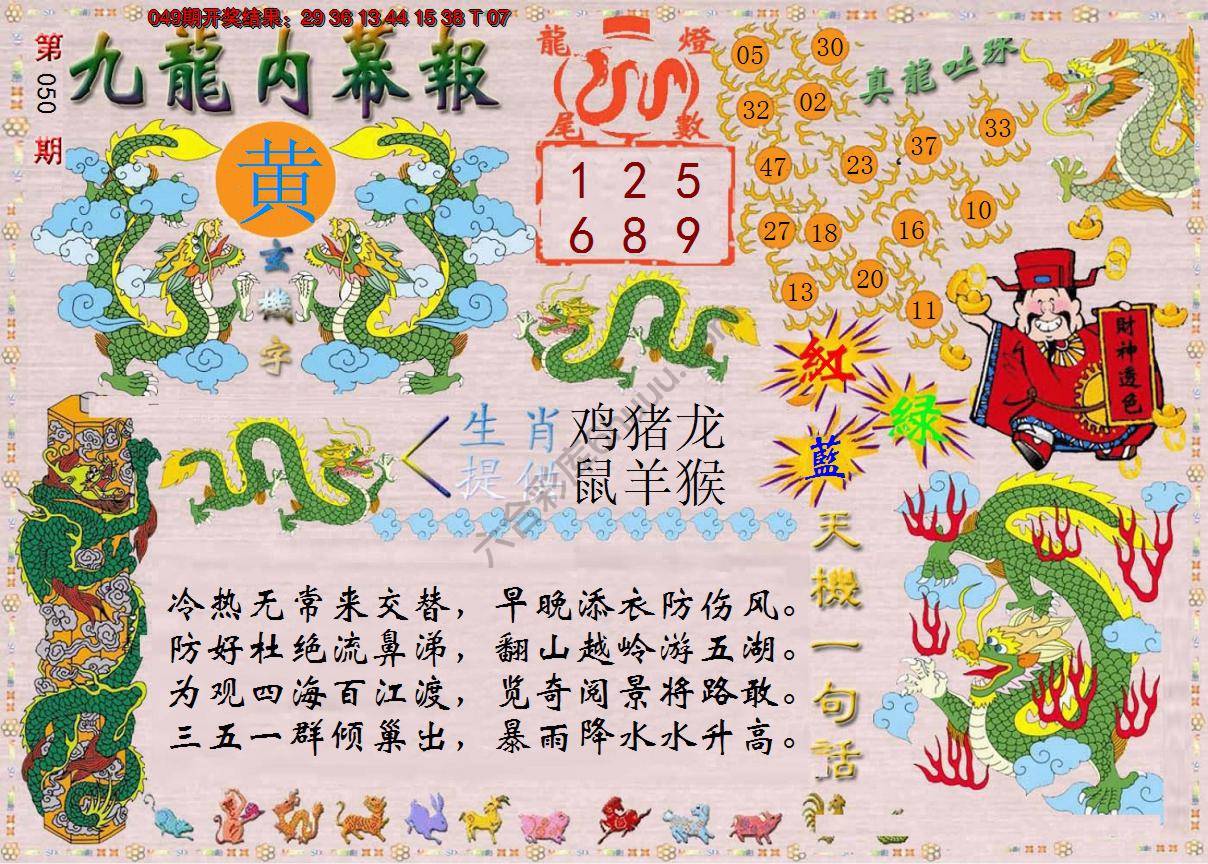 049期开奖结果：29 36 13 44 15 38 T 07
第050期
九龍内幕報
黄
玄機字
龍燈
尾數
1 2 5
6 8 9
真龍吐珠
05 30
32 02
47 23 37 33
27 18 16 10
13 20 11
財神透色
紅
綠
藍
生肖 鸡猪龙
提供 鼠羊猴
天機一句話
冷热无常来交替，早晚添衣防伤风。
防好杜绝流鼻涕，翻山越岭游五湖。
为观四海百江渡，览奇阅景将路敢。
三五一群倾巢出，暴雨降水水升高。